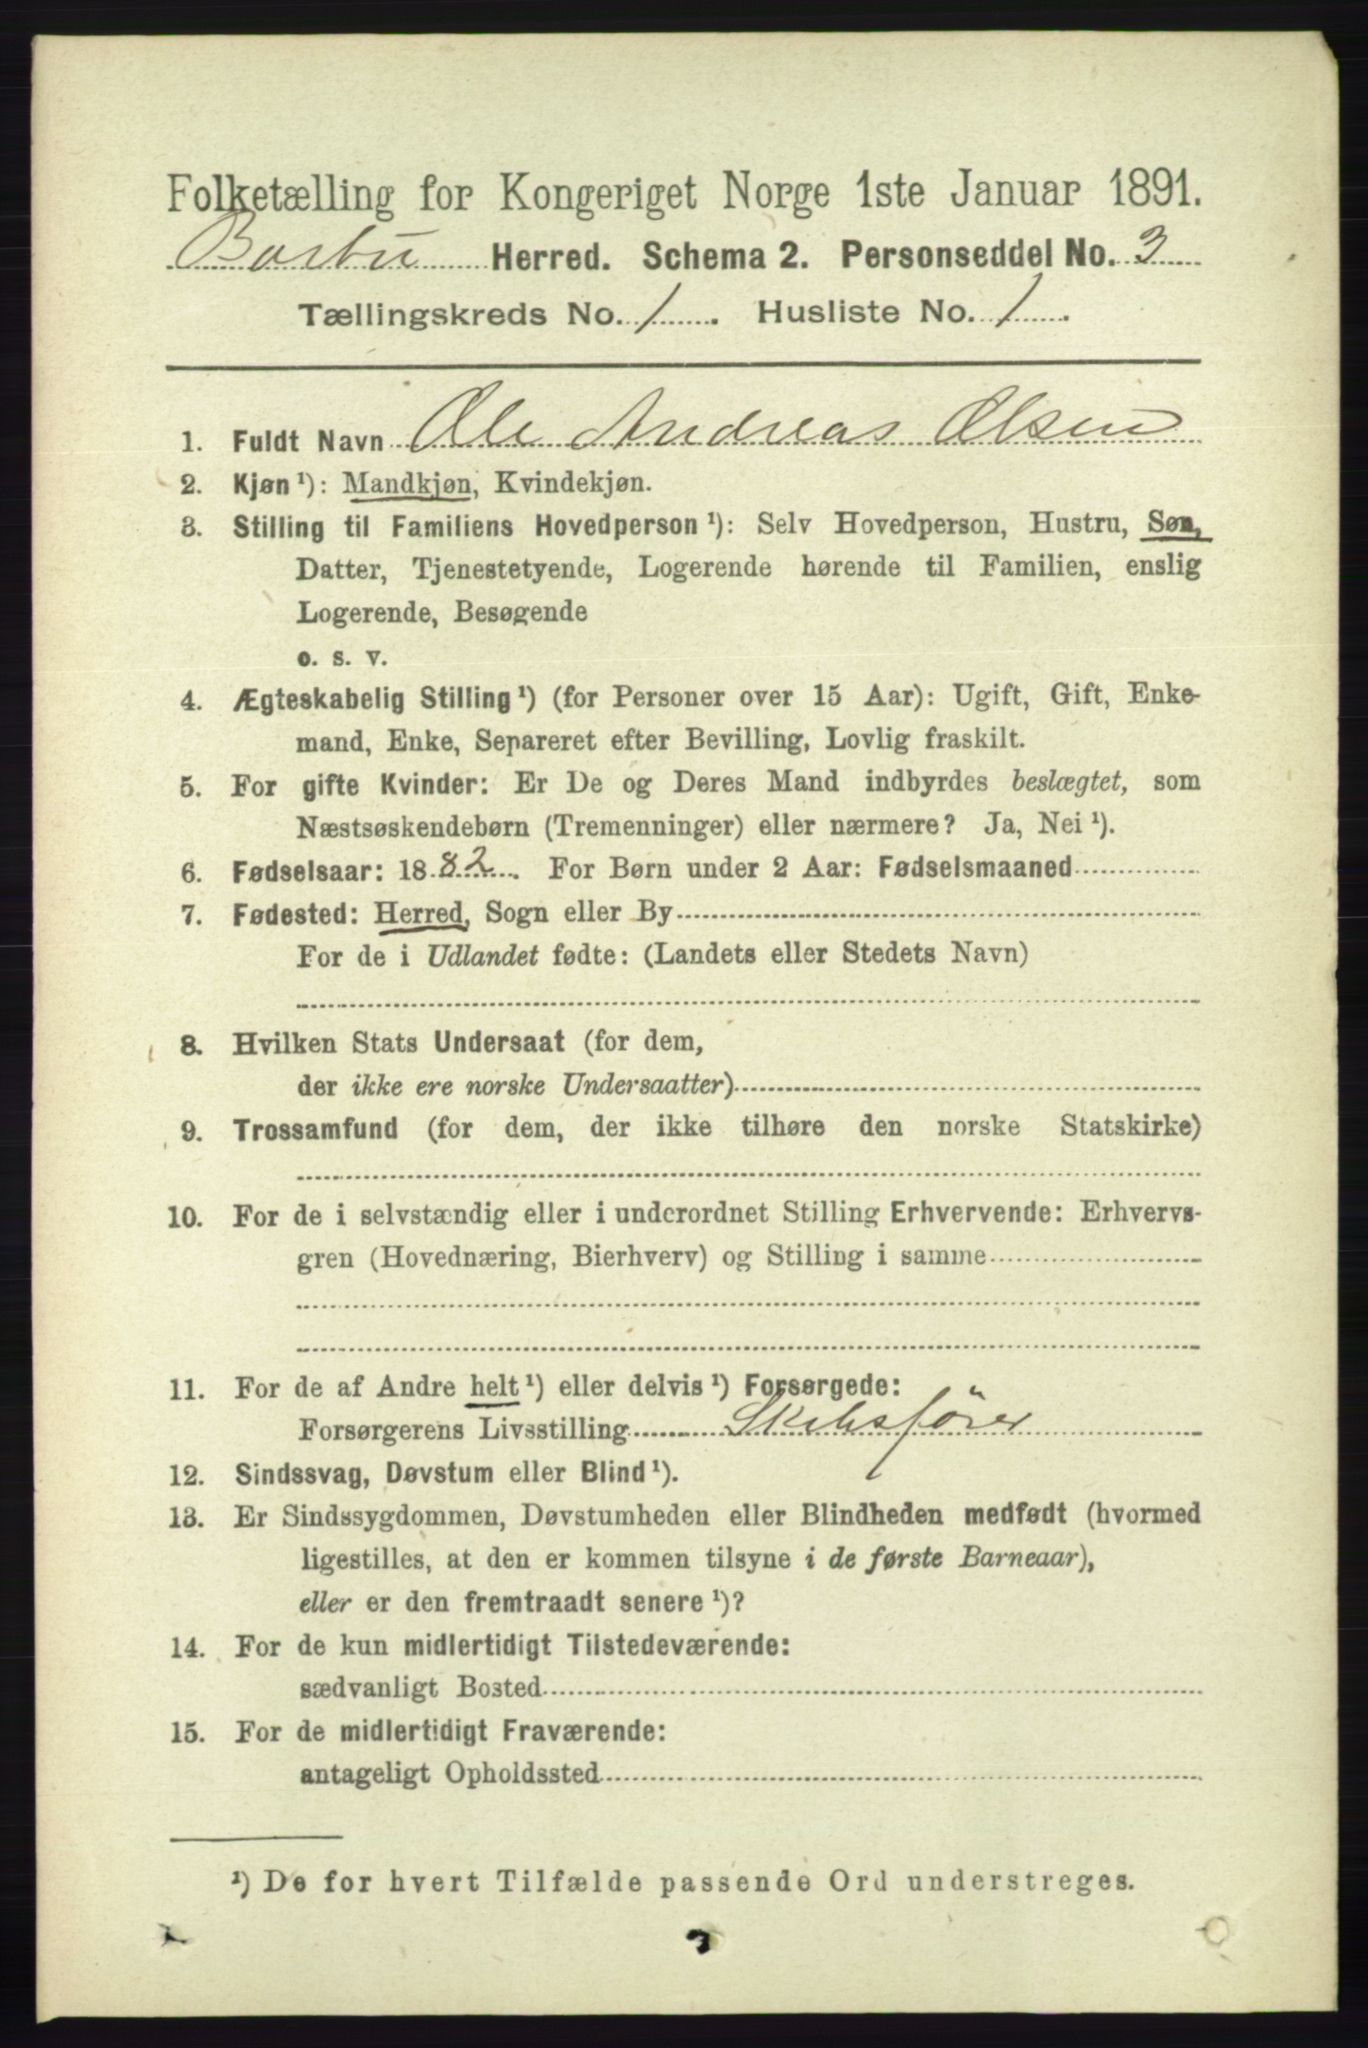 Folketælling for Kongeriget Norge 1ste Januar 1891.
Barbu Herred. Schema 2. Personseddel No. 3
Tællingskreds No. 1. Husliste No. 1.
1. Fuldt Navn Ole Andreas Olsen
2. Kjøn ¹): Mandkjøn, Kvindekjøn.
3. Stilling til Familiens Hovedperson ¹): Selv Hovedperson, Hustru, Søn,
Datter, Tjenestetyende, Logerende hørende til Familien, enslig
Logerende, Besøgende
o. s. v.
4. Ægteskabelig Stilling ¹) (for Personer over 15 Aar): Ugift, Gift, Enke-
mand, Enke, Separeret efter Bevilling, Lovlig fraskilt.
5. For gifte Kvinder: Er De og Deres Mand indbyrdes beslægtet, som
Næstsøskendebørn (Tremenninger) eller nærmere? Ja, Nei ¹).
6. Fødselsaar: 1882. For Børn under 2 Aar: Fødselsmaaned
7. Fødested: Herred, Sogn eller By
For de i Udlandet fødte: (Landets eller Stedets Navn)
8. Hvilken Stats Undersaat (for dem,
der ikke ere norske Undersaatter)
9. Trossamfund (for dem, der ikke tilhøre den norske Statskirke)
10. For de i selvstændig eller i underordnet Stilling Erhvervende: Erhvervs-
gren (Hovednæring, Bierhverv) og Stilling i samme
11. For de af Andre helt ¹) eller delvis ¹) Forsørgede:
Forsørgerens Livsstilling Skibsförer
12. Sindssvag, Døvstum eller Blind ¹).
13. Er Sindssygdommen, Døvstumheden eller Blindheden medfødt (hvormed
ligestilles, at den er kommen tilsyne i de første Barneaar),
eller er den fremtraadt senere ¹)?
14. For de kun midlertidigt Tilstedeværende:
sædvanligt Bosted
15. For de midlertidigt Fraværende:
antageligt Opholdssted
¹) De for hvert Tilfælde passende Ord understreges.